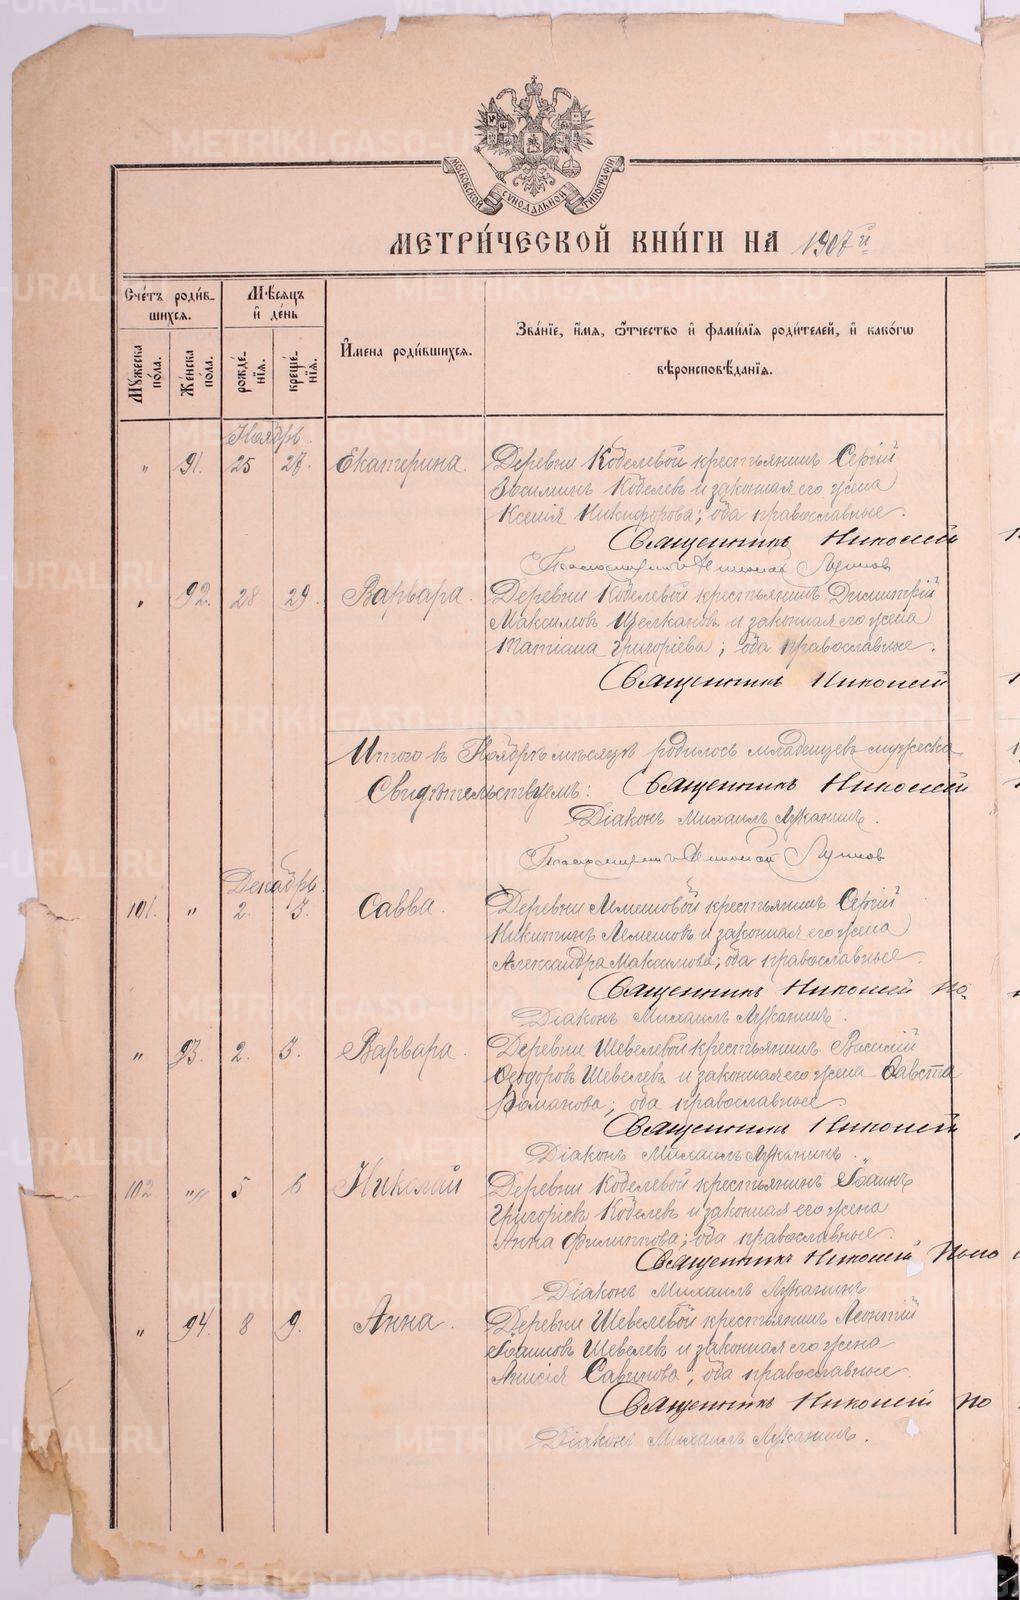 МОСКОВСКОЙ СУНОДАЛЬНОЙ ТИПОГРАФІИ
МЕТРИ́ЧЕСКОЙ КНИ́ГИ НА 1907 й
Сче́тъ роди́в-
шихся.
Мѣ́сяцъ
и҆ де́нь
Му́жеска по́ла.
Же́нска по́ла.
рожде́-
нїя.
креще́-
нїя.
И҆мена роди́вшихся.
Зва́нїе, и҆́мя, ѻ҆́тчество и҆ фами́лїя роди́телей, и҆ како́гѡ
вѣроисповѣ́данїя.
Ноябрь.
„ 91. 25 27. Екатерина. Деревни Кобелевой крестьянинъ Сергій
Зосиминъ Кобелевъ и законная его жена
Ксенія Никифорова; оба православные.
Священникъ Николай
„ 92. 28 29. Варвара. Деревни Кобелевой крестьянинъ Димитрій
Максимовъ Щелкановъ и законная его жена
Татіана Григоріева; оба православные.
Священникъ Николай
Итого въ Ноябрѣ мѣсяцѣ родилось младенцевъ мужеска
Свидѣтельствуемъ: Священникъ Николай
Діаконъ Михаилъ Луканинъ.
Декабрь.
101. „ 2. 3. Савва. Деревни Лемешовой крестьянинъ Сергій
Никитинъ Лемешовъ и законная его жена
Александра Максимова; оба православные.
Священникъ Николай По
Діаконъ Михаилъ Луканинъ.
„ 93. 2. 3. Варвара. Деревни Шевелевой крестьянинъ Василій
Ѳеодоровъ Шевелевъ и законная его жена
Романова; оба православные.
Священникъ Николай
Діаконъ Михаилъ Луканинъ.
102 „ 5 6 Николай Деревни Кобелевой крестьянинъ Іоаннъ
Григоріевъ Кобелевъ и законная его жена
Анна Филиппова; оба православные.
Священникъ Николай Попо
Діаконъ Михаилъ Луканинъ
„ 94. 8 9. Анна. Деревни Шевелевой крестьянинъ Леонтій
Іоанновъ Шевелевъ и законная его жена
Анисія Савинова, оба православные.
Священникъ Николай По
Діаконъ Михаилъ Луканинъ.
METRIKI.GASO-URAL.RU